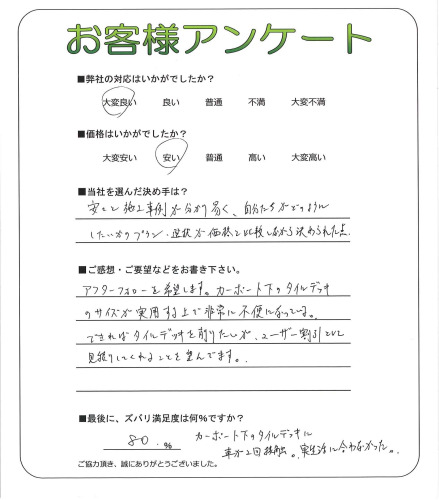 お客様アンケート
■弊社の対応はいかがでしたか？
大変良い 良い 普通 不満 大変不満
■価格はいかがでしたか？
大変安い 安い 普通 高い 大変高い
■当社を選んだ決め手は？
安さと施工事例が分かり易く、自分たちがどのように
したいかのプラン・選択が価格と比較しながら決められた点
■ご感想・ご要望などをお書き下さい。
アフターフォローを希望します。カーポート下のタイルデッキ
のサイズが実用する上で非常に不便になっている。
できればタイルデッキを削りたいが、ユーザー割引として
見積りしてくれることを望んでます。
■最後に、ズバリ満足度は何％ですか？
80.％ カーポート下のタイルデッキに
車が2回接触。実生活に合わなかった。
ご協力頂き、誠にありがとうございました。